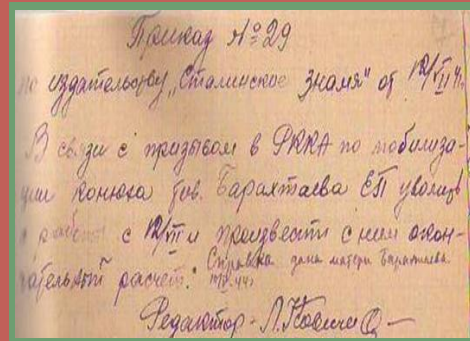 Приказ №29
по издательству „Сталинское знамя" от 12/VII 41г.
В связи с призывом в РККА по мобилиза-
ции конюха тов. Барахтаева ЕП уволить
с работы с 12/VII и произвести с ним окон-
чательный расчет.
Справка дана матери Барахтаева
Редактор - Л.